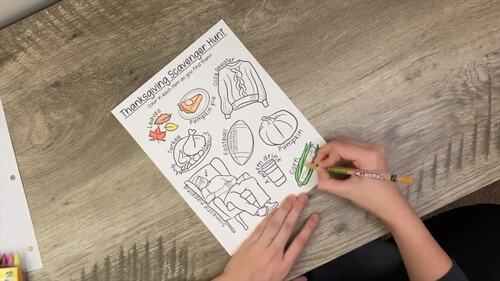 Thanksgiving Scavenger Hunt
Color in each item as you find them!
Leaves
Pumpkin pie
Cozy sweater
Turkey
Football
Pumpkin
Warm drink
Corn
Someone napping